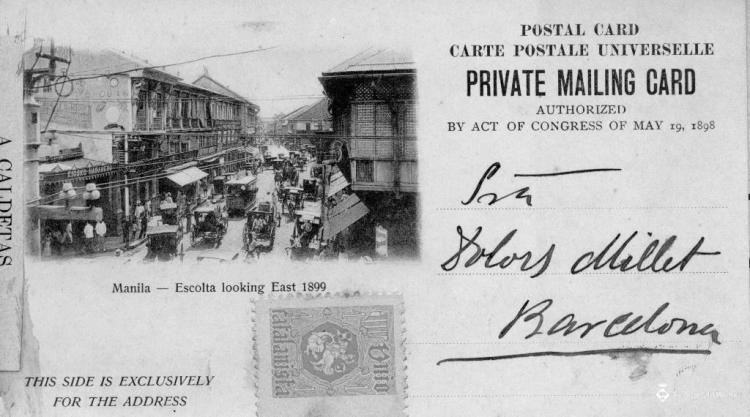 POSTAL CARD
CARTE POSTALE UNIVERSELLE
PRIVATE MAILING CARD
AUTHORIZED
BY ACT OF CONGRESS OF MAY 19, 1898
Sra
Dolors Millet
Barcelona
Manila — Escolta looking East 1899
Unio
catalanista
THIS SIDE IS EXCLUSIVELY
FOR THE ADDRESS
A CALDETAS